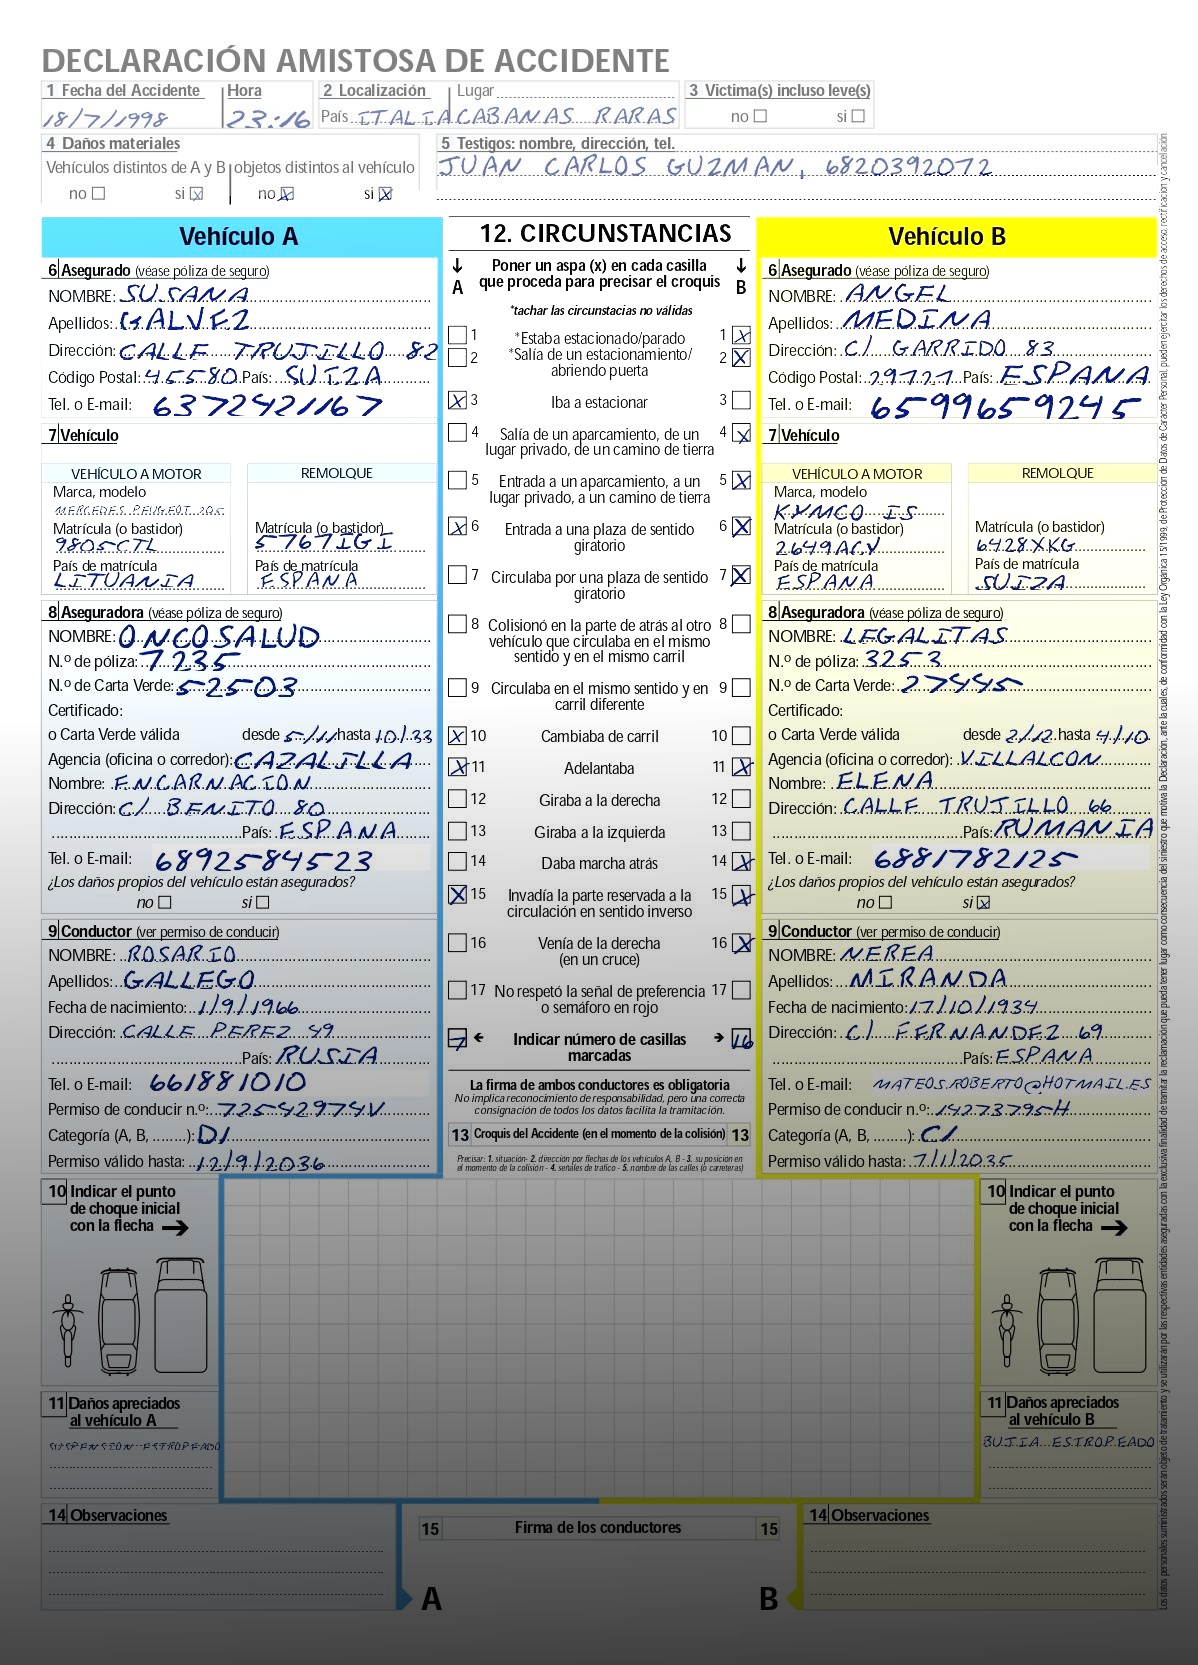 DECLARACIÓN AMISTOSA DE ACCIDENTE
1 Fecha del Accidente Hora 2 Localización Lugar 3 Victima(s) incluso leve(s)
18/7/1998 23:16 País ITALIA CABANAS RARAS no si
4 Daños materiales
Vehículos distintos de A y B objetos distintos al vehículo
no si X no X si X
5 Testigos: nombre, dirección, tel.
JUAN CARLOS GUZMAN, 6820392072
Vehículo A
6 Asegurado (véase póliza de seguro)
NOMBRE: SUSANA
Apellidos: GALVEZ
Dirección: CALLE TRUJILLO 82
Código Postal: 45580 País: SUIZA
Tel. o E-mail: 6372421167
7 Vehículo
VEHÍCULO A MOTOR REMOLQUE
Marca, modelo
MERCEDES PEUGEOT 205
Matrícula (o bastidor) Matrícula (o bastidor)
9805CTL 5767IGI
País de matrícula País de matrícula
LITUANIA ESPANA
8 Aseguradora (véase póliza de seguro)
NOMBRE: ONCOSALUD
N.º de póliza: 7235
N.º de Carta Verde: 52503
Certificado:
o Carta Verde válida desde 5/11 hasta 10/33
Agencia (oficina o corredor): CAZALILLA
Nombre: ENCARNACION
Dirección: C/ BENITO 80
País: ESPANA
Tel. o E-mail: 6892584523
¿Los daños propios del vehículo están asegurados?
no si
9 Conductor (ver permiso de conducir)
NOMBRE: ROSARIO
Apellidos: GALLEGO
Fecha de nacimiento: 1/9/1966
Dirección: CALLE PEREZ 49
País: RUSIA
Tel. o E-mail: 661881010
Permiso de conducir n.º: 72542974V
Categoría (A, B, ........): D1
Permiso válido hasta: 12/9/2036
12. CIRCUNSTANCIAS
A Poner un aspa (x) en cada casilla que proceda para precisar el croquis B
*tachar las circunstacias no validas
1 *Estaba estacionado/parado 1 X
2 *Salía de un estacionamiento/ 2 X
abriendo puerta
X 3 Iba a estacionar 3
4 Salía de un aparcamiento, de un 4 X
lugar privado, de un camino de tierra
5 Entrada a un aparcamiento, a un 5 X
lugar privado, a un camino de tierra
X 6 Entrada a una plaza de sentido 6 X
giratorio
7 Circulaba por una plaza de sentido 7 X
giratorio
8 Colisionó en la parte de atrás al otro 8
vehículo que circulaba en el mismo
sentido y en el mismo carril
9 Circulaba en el mismo sentido y en 9
carril diferente
X 10 Cambiaba de carril 10
X 11 Adelantaba 11 X
12 Giraba a la derecha 12
13 Giraba a la izquierda 13
14 Daba marcha atrás 14 X
X 15 Invadía la parte reservada a la 15 X
circulación en sentido inverso
16 Venía de la derecha 16 X
(en un cruce)
17 No respetó la señal de preferencia 17
o semáforo en rojo
7 Indicar número de casillas 16
marcadas
La firma de ambos conductores es obligatoria
No implica reconocimiento de responsabilidad, pero una correcta
consignación de todos los datos facilita la tramitación.
13 Croquis del Accidente (en el momento de la colisión) 13
Precisar: 1. situación- 2. dirección por flechas de los vehículos A, B - 3. su posición en
el momento de la colisión - 4. señales de tráfico - 5. nombre de las calles (o carreteras)
Vehículo B
6 Asegurado (véase póliza de seguro)
NOMBRE: ANGEL
Apellidos: MEDINA
Dirección: C/ GARRIDO 83
Código Postal: 29727 País: ESPANA
Tel. o E-mail: 6599659245
7 Vehículo
VEHÍCULO A MOTOR REMOLQUE
Marca, modelo
KYMCO IS
Matrícula (o bastidor) Matrícula (o bastidor)
2649ACV 6428XKG
País de matrícula País de matrícula
ESPANA SUIZA
8 Aseguradora (véase póliza de seguro)
NOMBRE: LEGALITAS
N.º de póliza: 3253
N.º de Carta Verde: 27445
Certificado:
o Carta Verde válida desde 2/12 hasta 4/10
Agencia (oficina o corredor): VILLALCON
Nombre: ELENA
Dirección: CALLE TRUJILLO 66
País: RUMANIA
Tel. o E-mail: 6881782125
¿Los daños propios del vehículo están asegurados?
no si X
9 Conductor (ver permiso de conducir)
NOMBRE: NEREA
Apellidos: MIRANDA
Fecha de nacimiento: 17/10/1934
Dirección: C/ FERNANDEZ 69
País: ESPANA
Tel. o E-mail: MATEOS.ROBERTO@HOTMAIL.ES
Permiso de conducir n.º: 14273795H
Categoría (A, B, ........): C1
Permiso válido hasta: 7/1/2035
10 Indicar el punto
de choque inicial
con la flecha
11 Daños apreciados
al vehículo A
SUSPENSION ESTROPEADO
10 Indicar el punto
de choque inicial
con la flecha
11 Daños apreciados
al vehículo B
BUJIA ESTROPEADO
14 Observaciones
15 Firma de los conductores 15
A B
14 Observaciones
Los datos personales suministrados serán objeto de tratamiento y se utilizarán por las respectivas entidades aseguradas con la exclusiva finalidad de tramitar la reclamación que pueda tener lugar como consecuencia del siniestro que motiva la Declaración, ante la cuales, de conformidad con la Ley Orgánica 15/1999, de Protección de Datos de Carácter Personal, pueden ejercitar los derechos de acceso, rectificación y cancelación